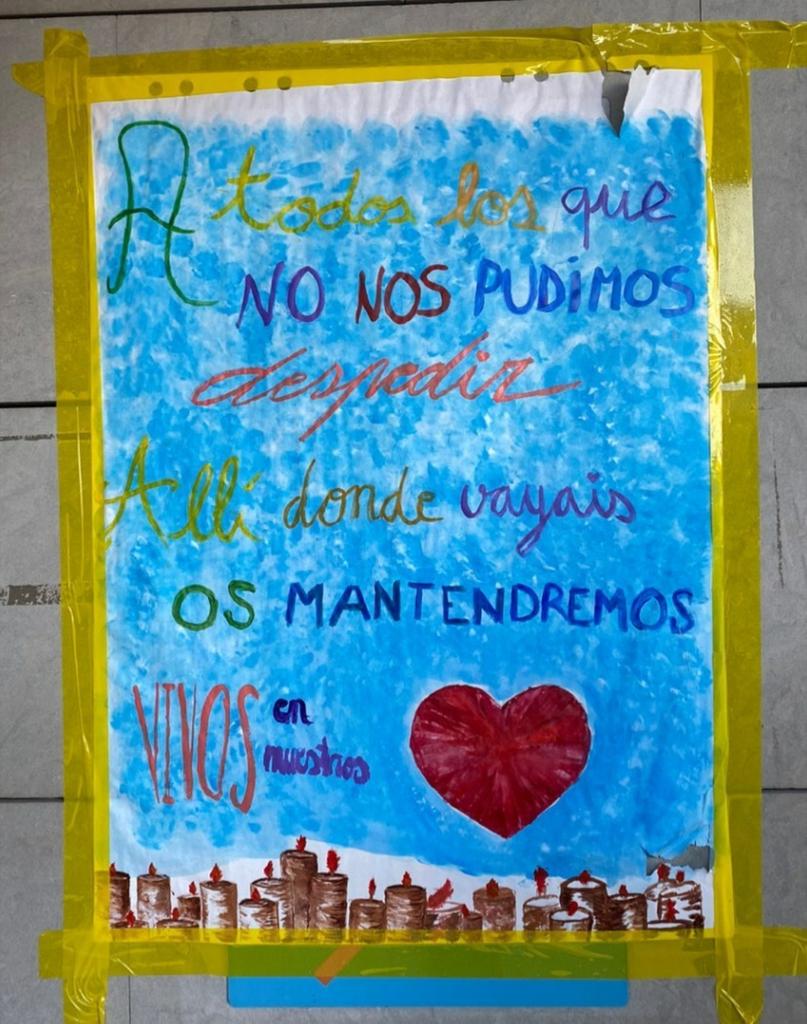 A todos los que
NO NOS PUDiMOS
despedir
Allí donde vayais
OS MANTENDREMOS
VIVOS en
nuestros